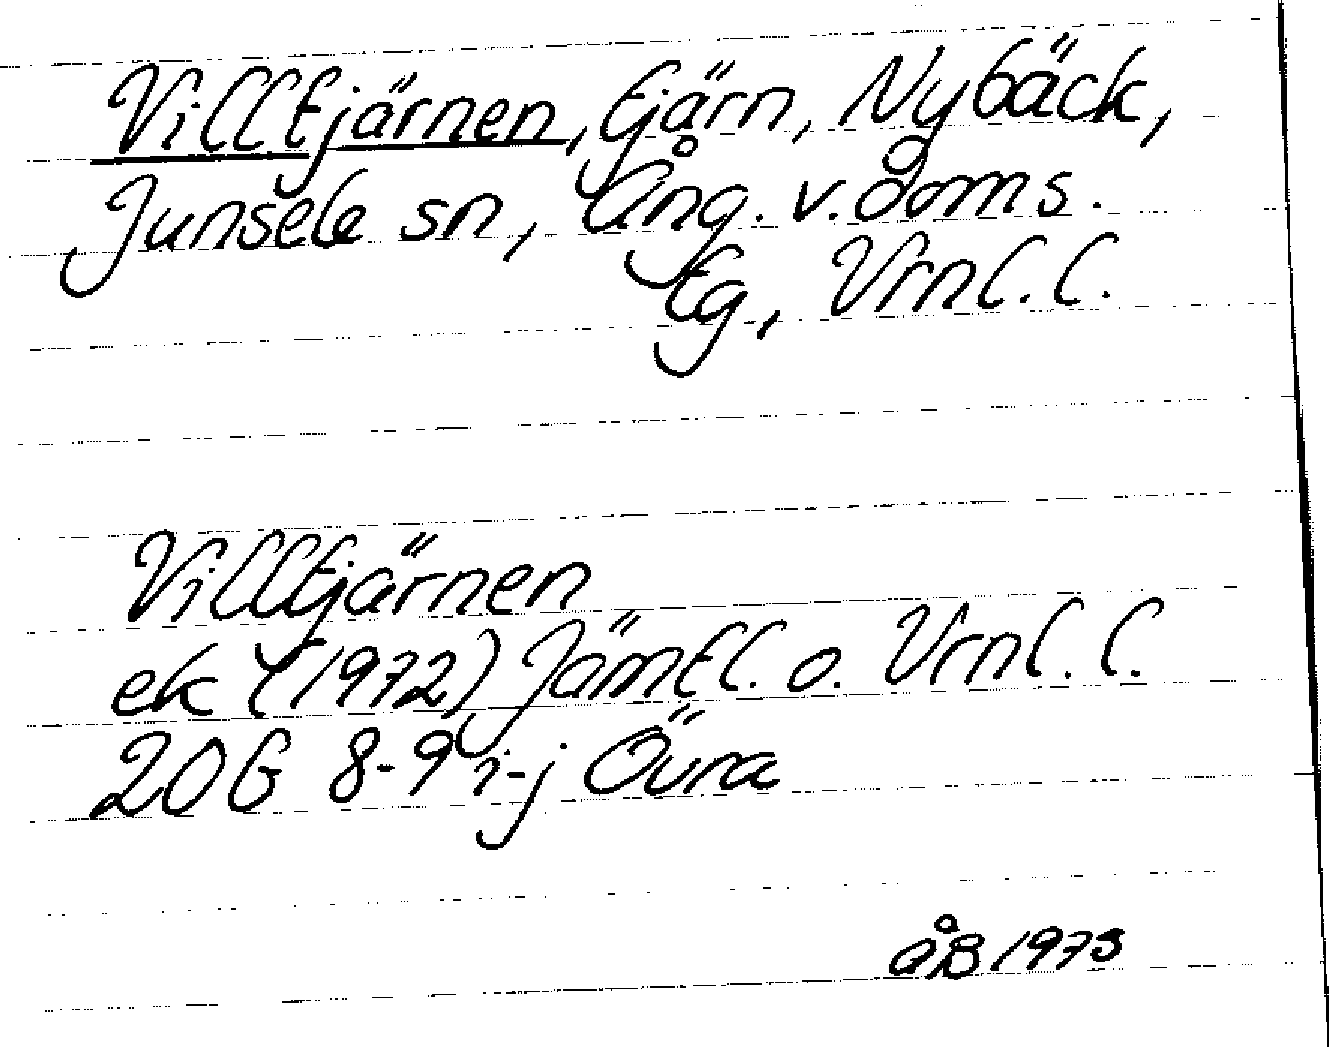 Villtjärnen, tjärn, Nybäck,
Junsele sn, Ång. v. doms.
tg, Vrnl. l.
Villtjärnen
ek (1972) Jämtl. o. Vrnl. l.
20G 8-9 i-j Övra
åB 1973